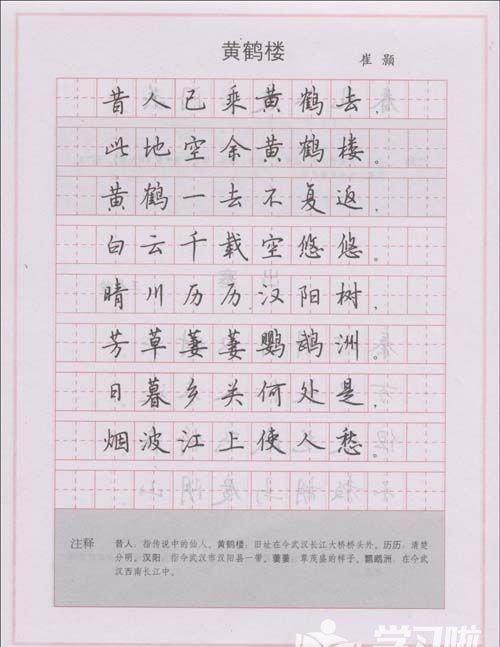 黄鹤楼
崔颢
昔人已乘黄鹤去，
此地空余黄鹤楼。
黄鹤一去不复返，
白云千载空悠悠。
晴川历历汉阳树，
芳草萋萋鹦鹉洲。
日暮乡关何处是，
烟波江上使人愁。
注释
昔人：指传说中的仙人。黄鹤楼：旧址在今武汉长江大桥桥头外。历历：清楚
分明。汉阳：指今武汉市汉阳县一带。萋萋：草茂盛的样子。鹦鹉洲：在今武
汉西南长江中。
学习啦